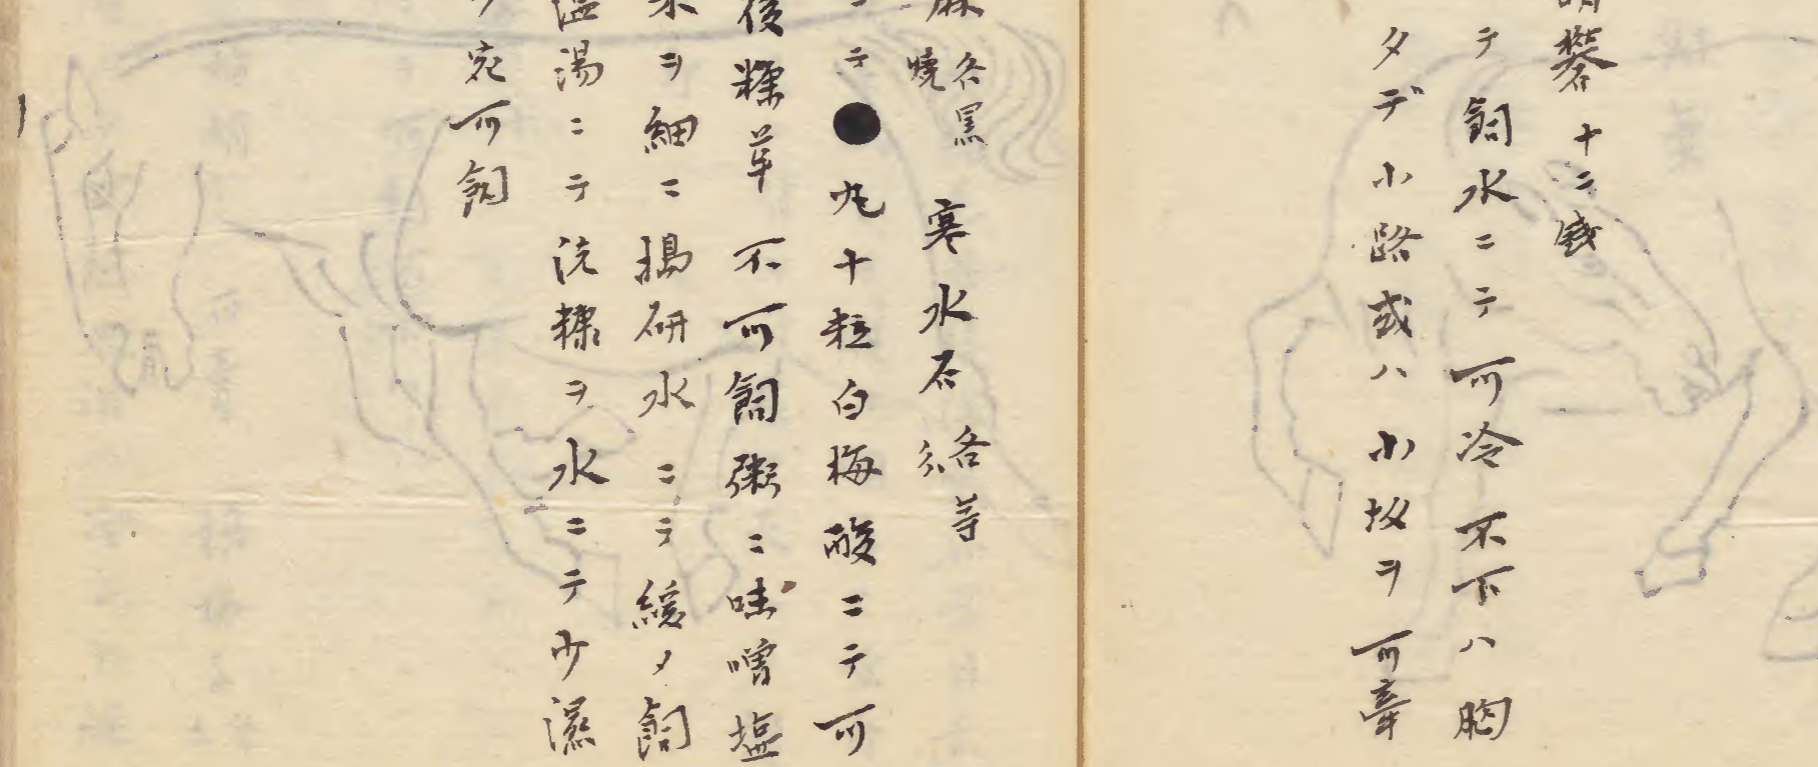 礬十二戔
テ飼水ニテ可冷不下ハ胸
タデ小路或ハ小坂ヲ可牽
麻各黒焼 寒水石 各等分
ニテ●丸十粒白梅酸ニテ可
後糠草不可飼粥ニ味噌塩
米ヲ細ニ搗研水ニテ緩メ飼
温湯ニテ洗糠ヲ水ニテ少濕
少宛可飼